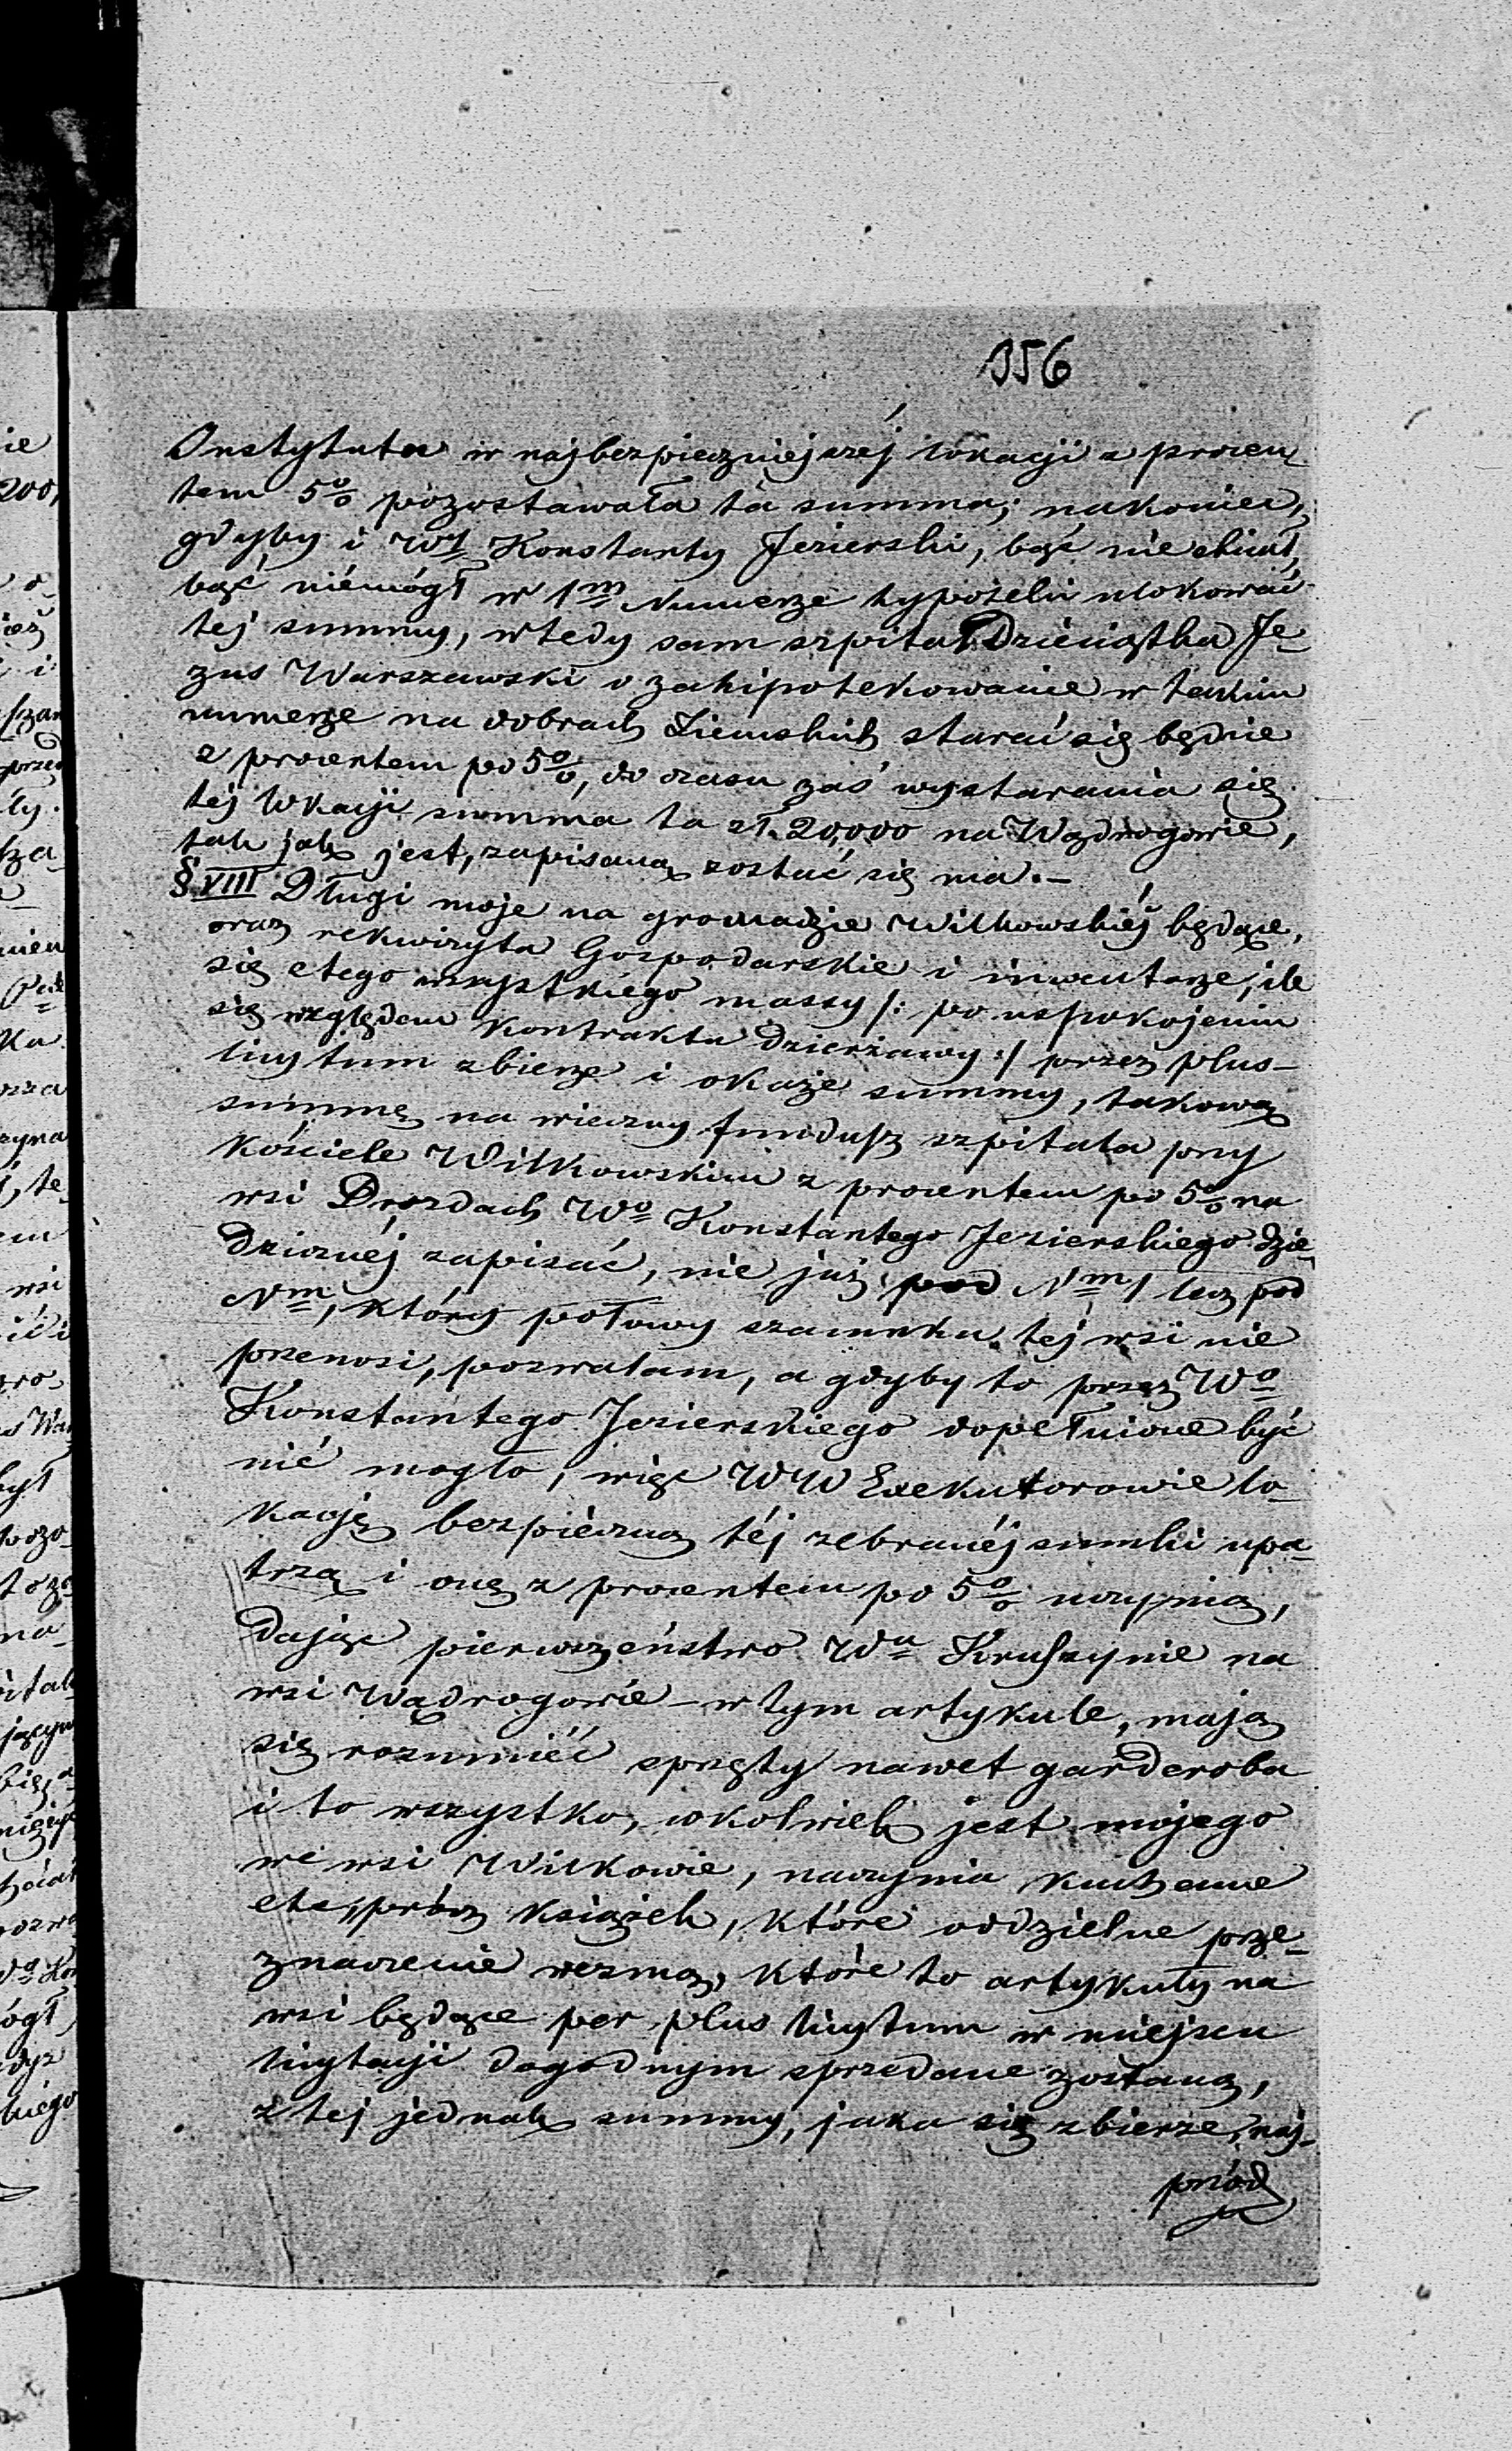 356
Instytuta w najbezpieczniejszéj lokacji z procen
tem 5% pozostawała ta summa; nakoniec,
gdyby i WJ Konstanty Jezierski, bąć nie chciał,
bąć niémógł w 1m Numerze hypoteki ulokować
tej summy, wtedy sam szpital Dzieciątka Je-
zus Warszawski o zahipotekowanie w takim
numerze na dobrach Ziemskich starać się będzie
z procentem po 5%, do czasu zaś wystarania się
tej lokacji summa ta zł. 20,000 na Wądrogowie,
tak jak jest, zapisaną zostać się ma.–
§ VIII Długi moje na gromadzie Wilkowskiéj będące,
oraz rekwizyta Gospodarskie i inwentarze, ile
się z tego wszystkiégo massy /: po uspokojeniu
się względem kontraktu dzierżawy :/ przez plus-
licytum zbierze i okaże summy, takową
summę na wieczny fundusz szpitala przy
kościele Wilkowskim z procentem po 5% na
wsi Drozdach Wo Konstantego Jezierskiego dzie
dzicznéj zapisać, nie już pod Nm 1 lecz pod
Nm, który połowy szacunku tej wsi nie
przenosi, pozwalam, a gdyby to przez Wo
Konstantego Jezierskiego dopełnione być
nié mogło, więc WW Exekutorowie lo-
kację bezpieczną téj zebranéj sumki upa-
trzą i onę z procentem po 5% uczynią,
dając pierwszeństwo Wu Kruszynie na
wsi Wądrogowie – w tym artykule, mają
się rozumiéć sprzęty nawet garderoba
i to wszystko, cokolwiek jest mojego
we wsi Wilkowie, naczynia kuchenne
etc, prócz książek, które oddzielne prze-
znaczenie wezmą, które to artykuły na
wsi będące per plus licytum w miejscu
licytacji dogodnym sprzedane zostaną,
z tej jednak summy, jaka się zbierze, naj-
przód